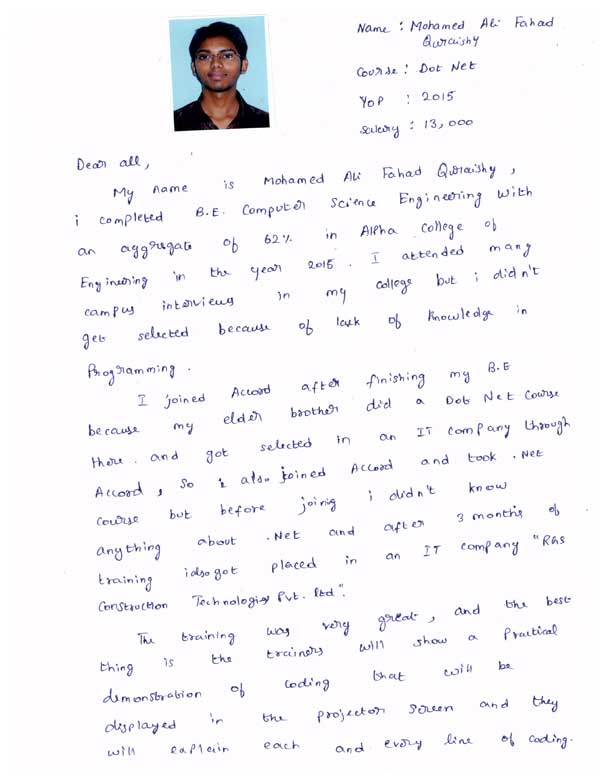 Name : Mohamed Ali Fahad
Quraishy
Course : Dot Net
YOP : 2015
Salary : 13,000
Dear all,
My name is Mohamed Ali Fahad Quraishy ,
i completed B.E. Computer Science Engineering with
an aggregate of 62% in Alpha college of
Engineering in the year 2015 . I attended many
campus interviews in my college but i didn't
get selected because of lack of knowledge in
Programming .
I joined Accord after finishing my B.E
because my elder brother did a Dot Net Course
there . and got selected in an IT company through
Accord , So i also joined Accord and took .Net
course but before joinig i didn't know
anything about .Net and after 3 months of
training i also got placed in an IT company "RGS
Construction Technologies Pvt. Ltd".
The training was very great , and the best
thing is the trainers will show a Practical
demonstration of coding that will be
displayed in the projector screen and they
will explain each and every line of coding.